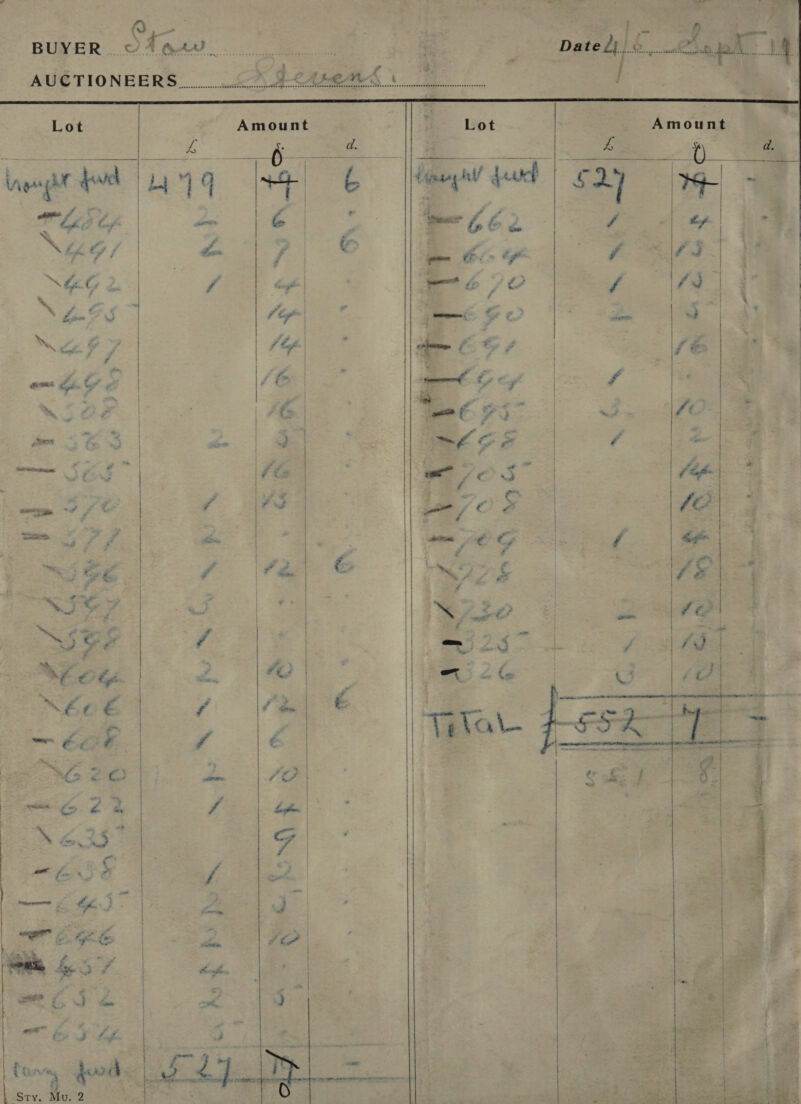 BUYER Stow. Date 4/5 Sept 19
AUCTIONEERS Stevens.
Lot Amount
£ d.
brought fwd 479 19 6
484 2 6 -
491 2 7 6
492 1 4 -
495 14 -
497 14 -
498 16 -
508 16 -
563 2 5 -
565 16 -
570 1 15 -
577 2 - -
596 1 12 6
597 3 - -
598 1 - -
604 2 10 -
606 1 12 6
608 1 6 -
620 2 10 -
622 1 4 -
635 9 -
638 1 2 -
645 2 5 -
646 2 10 -
651 4 - -
652 2 5 -
654 5 - -
Carry fwd 527 19 -
0
STY. MU. 2
Lot Amount
£ d.
0
brought fwd 527 19 -
662 1 4 -
664 1 15 -
670 1 15 -
690 2 5 -
691 16 -
694 1 - -
695 3 10 -
698 1 2 -
705 14 -
708 10 -
709 1 4 -
728 18 -
730 2 10 -
325 1 15 -
326 3 10 -
Total £552 7 -
551 8